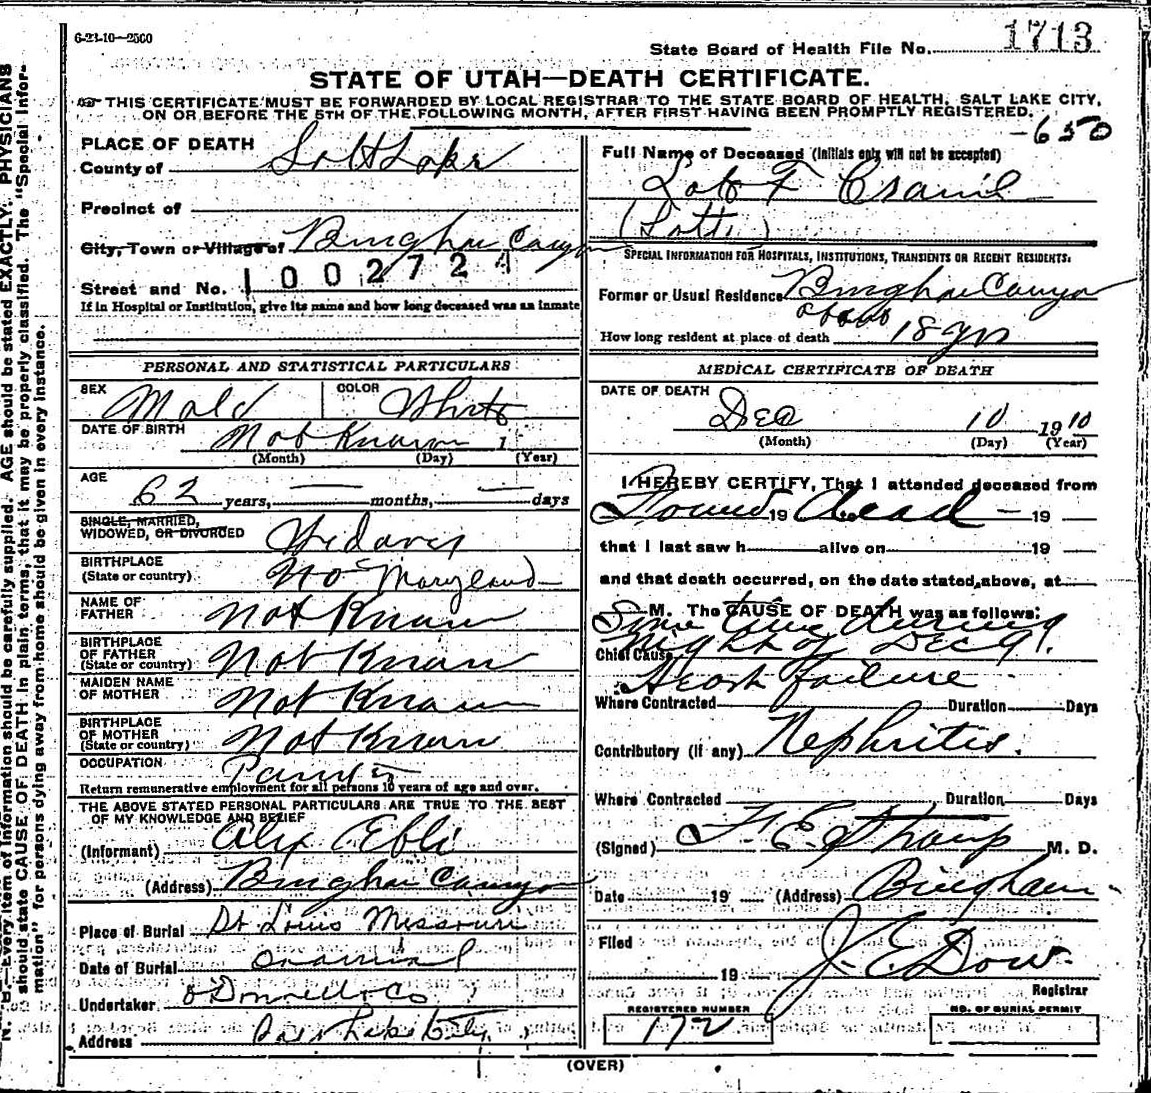 6-23-10—2500
State Board of Health File No. 1713
STATE OF UTAH—DEATH CERTIFICATE.
THIS CERTIFICATE MUST BE FORWARDED BY LOCAL REGISTRAR TO THE STATE BOARD OF HEALTH, SALT LAKE CITY,
ON OR BEFORE THE 5TH OF THE FOLLOWING MONTH, AFTER FIRST HAVING BEEN PROMPTLY REGISTERED.
-650
PLACE OF DEATH
County of Salt Lake
Precinct of
City, Town or Village of Bingham Canyon
1002724
Street and No.
If in Hospital or Institution, give its name and how long deceased was an inmate
PERSONAL AND STATISTICAL PARTICULARS
SEX Male COLOR White
DATE OF BIRTH Not Known 1
(Month) (Day) (Year)
AGE 62 years, — months, — days
SINGLE, MARRIED,
WIDOWED, OR DIVORCED
BIRTHPLACE
(State or country) Maryland
NAME OF
FATHER Not Known
BIRTHPLACE
OF FATHER
(State or country) Not Known
MAIDEN NAME
OF MOTHER Not Known
BIRTHPLACE
OF MOTHER
(State or country) Not Known
OCCUPATION Painter
Return remunerative employment for all persons 10 years of age and over.
THE ABOVE STATED PERSONAL PARTICULARS ARE TRUE TO THE BEST
OF MY KNOWLEDGE AND BELIEF
(Informant) Alex Ebli
(Address) Bingham Canyon
Place of Burial St Louis Missouri
Date of Burial
Undertaker O Donnell & Co
Address Salt Lake City
Full Name of Deceased (Initials only will not be accepted)
F
SPECIAL INFORMATION FOR HOSPITALS, INSTITUTIONS, TRANSIENTS OR RECENT RESIDENTS.
Former or Usual Residence Bingham Canyon
about
How long resident at place of death 18 yrs
MEDICAL CERTIFICATE OF DEATH
DATE OF DEATH
Dec 10 1910
(Month) (Day) (Year)
I HEREBY CERTIFY, That I attended deceased from
Found 19 dead — 19
that I last saw h alive on 19
and that death occurred, on the date stated above, at
M. The CAUSE OF DEATH was as follows:
Some time during
Chief Cause night of Dec 9.
Heart failure
Where Contracted Duration Days
Contributory (if any) Nephritis.
Where Contracted Duration Days
(Signed) F. E. Straup M. D.
Date 19 (Address) Bingham
Filed
19 J. E. Dow.
Registrar
REGISTERED NUMBER
172
NO. OF BURIAL PERMIT
(OVER)
N. B.—Every item of information should be carefully supplied. AGE should be stated EXACTLY. PHYSICIANS
should state CAUSE OF DEATH in plain terms, that it may be properly classified. The "Special Infor-
mation" for persons dying away from home should be given in every instance.